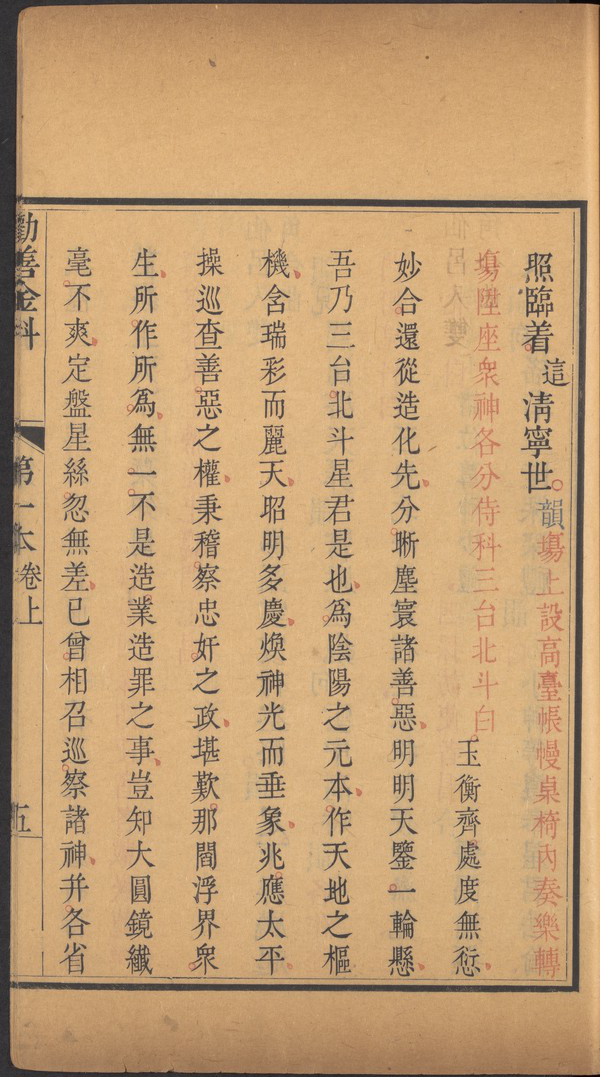 照臨着這清寧世韻場上設高臺帳幔桌椅內奏樂轉
場陞座衆神各分侍科三台北斗白玉衡齊處度無愆
妙合還從造化先分晣塵寰諸善惡明明天鑒一輪懸
吾乃三台北斗星君是也爲陰陽之元本作天地之樞
機含瑞彩而麗天昭明多慶煥神光而垂象兆應太平
操巡查善惡之權秉稽察忠奸之政堪歎那閻浮界衆
生所作所爲無一不是造業造罪之事豈知大圓鏡纖
毫不爽定盤星絲忽無差已曾相召巡察諸神并各省
勸善金科
第一本卷上
五